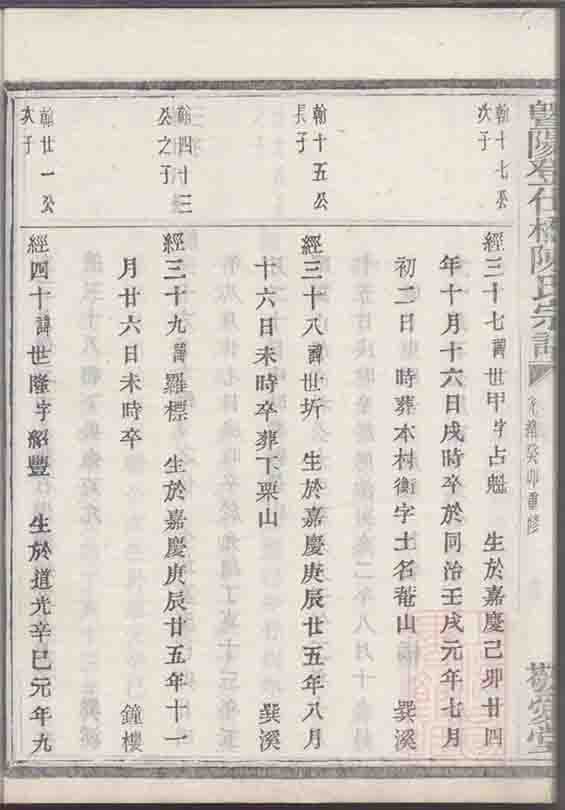 暨陽登仕橋陳氏宗譜
光緒癸卯重修
敬家堂
翰十七公
次子
經三十七諱世甲字占魁 生於嘉慶己卯廿四
年十月十六日戌時卒於同治壬戌元年七月
初二日 時葬本村衡字土名菴山 巽溪
翰十五公
長子
經三十八諱世圻 生於嘉慶庚辰廿五年八月
十六日未時卒葬下栗山 巽溪
翰四十三
公之子
經三十九諱羅標 生於嘉慶庚辰廿五年十一
月廿六日未時卒 鐘樓
翰廿一公
次子
經四十諱世隆字紹豐 生於道光辛巳元年九